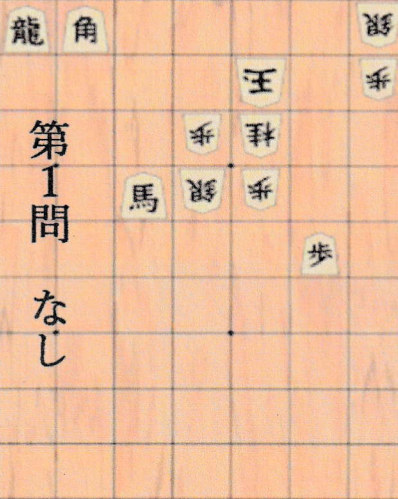 龍 角 銀
玉 歩
歩 桂
馬 銀 歩
歩
第1問 なし